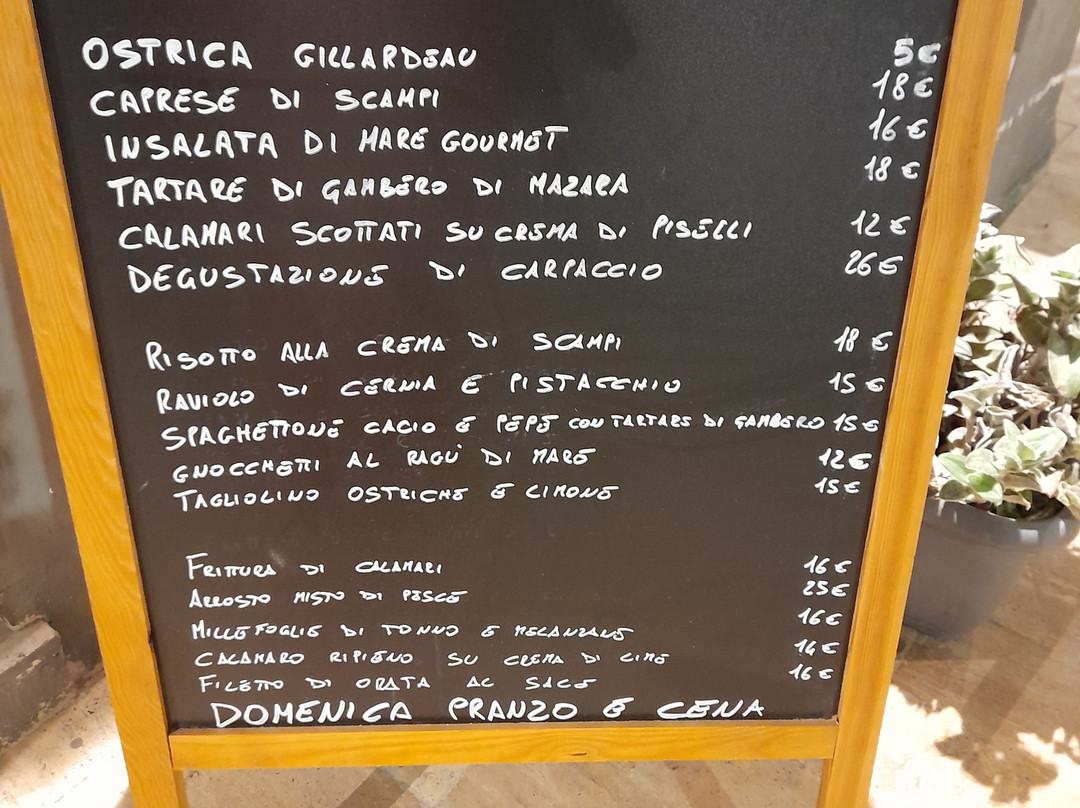 OSTRICA GILLARDEAU 5€
CAPRESE DI SCAMPI 18€
INSALATA DI MARE GOURMET 16€
TARTARE DI GAMBERO DI MAZARA 18€
CALAMARI SCOTTATI SU CREMA DI PISELLI 12€
DEGUSTAZIONE DI CARPACCIO 26€
RISOTTO ALLA CREMA DI SCAMPI 18€
RAVIOLO DI CERNIA E PISTACCHIO 15€
SPAGHETTONE CACIO E PEPE CON TARTARE DI GAMBERO 15€
GNOCCHETTI AL RAGÙ DI MARE 12€
TAGLIOLINO OSTRICHE E LIMONE 15€
FRITTURA DI CALAMARI 16€
ARROSTO MISTO DI PESCE 25€
MILLEFOGLIE DI TONNO E MELANZANE 16€
CALAMARO RIPIENO SU CREMA DI LIME 14€
FILETTO DI ORATA AL SALE 16€
DOMENICA PRANZO E CENA